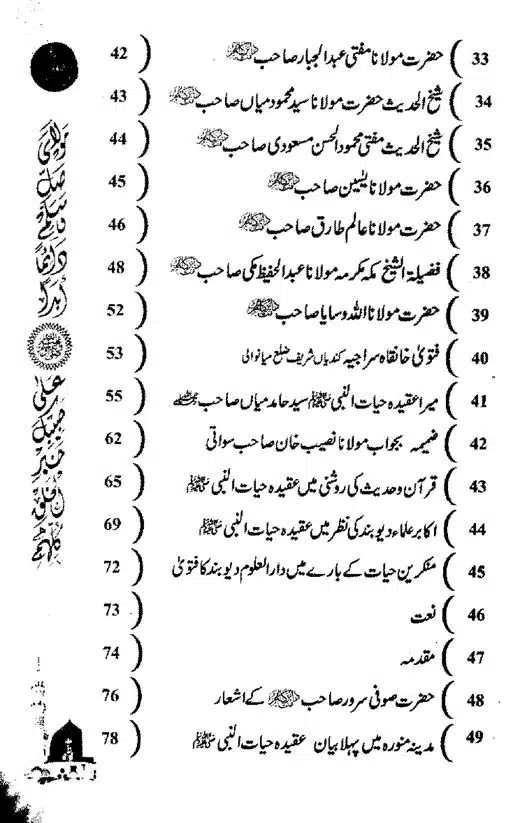 33 ) حضرت مولانا مفتی عبدالجبار صاحب ( 42
34 ) شیخ الحدیث حضرت مولانا سید محمود میاں صاحب ( 43
35 ) شیخ الحدیث مفتی محمود الحسن مسعودی صاحب ( 44
36 ) حضرت مولانا یٰسین صاحب ( 45
37 ) حضرت مولانا عالم طارق صاحب ( 46
38 ) فضیلۃ الشیخ مکہ مکرمہ مولانا عبدالحفیظ مکی صاحب ( 48
39 ) حضرت مولانا اللہ وسایا صاحب ( 52
40 ) فتویٰ خانقاہ سراجیہ کندیاں شریف ضلع میانوالی ( 53
41 ) میرا عقیدہ حیات النبی ﷺ سید حامد میاں صاحب ( 55
42 ) ضمیمہ بجواب مولانا نصیب خان صاحب سواتی ( 62
43 ) قرآن وحدیث کی روشنی میں عقیدہ حیات النبی ﷺ ( 65
44 ) اکابر علماء دیوبند کی نظر میں عقیدہ حیات النبی ﷺ ( 69
45 ) منکرین حیات کے بارے میں دارالعلوم دیوبند کا فتویٰ ( 72
46 ) نعت ( 73
47 ) مقدمہ ( 74
48 ) حضرت صوفی سرور صاحب کے اشعار ( 76
49 ) مدینہ منورہ میں پہلا بیان عقیدہ حیات النبی ﷺ ( 78
مولای صل وسلم دائما ابدا
علی حبیبک خیر الخلق کلھم